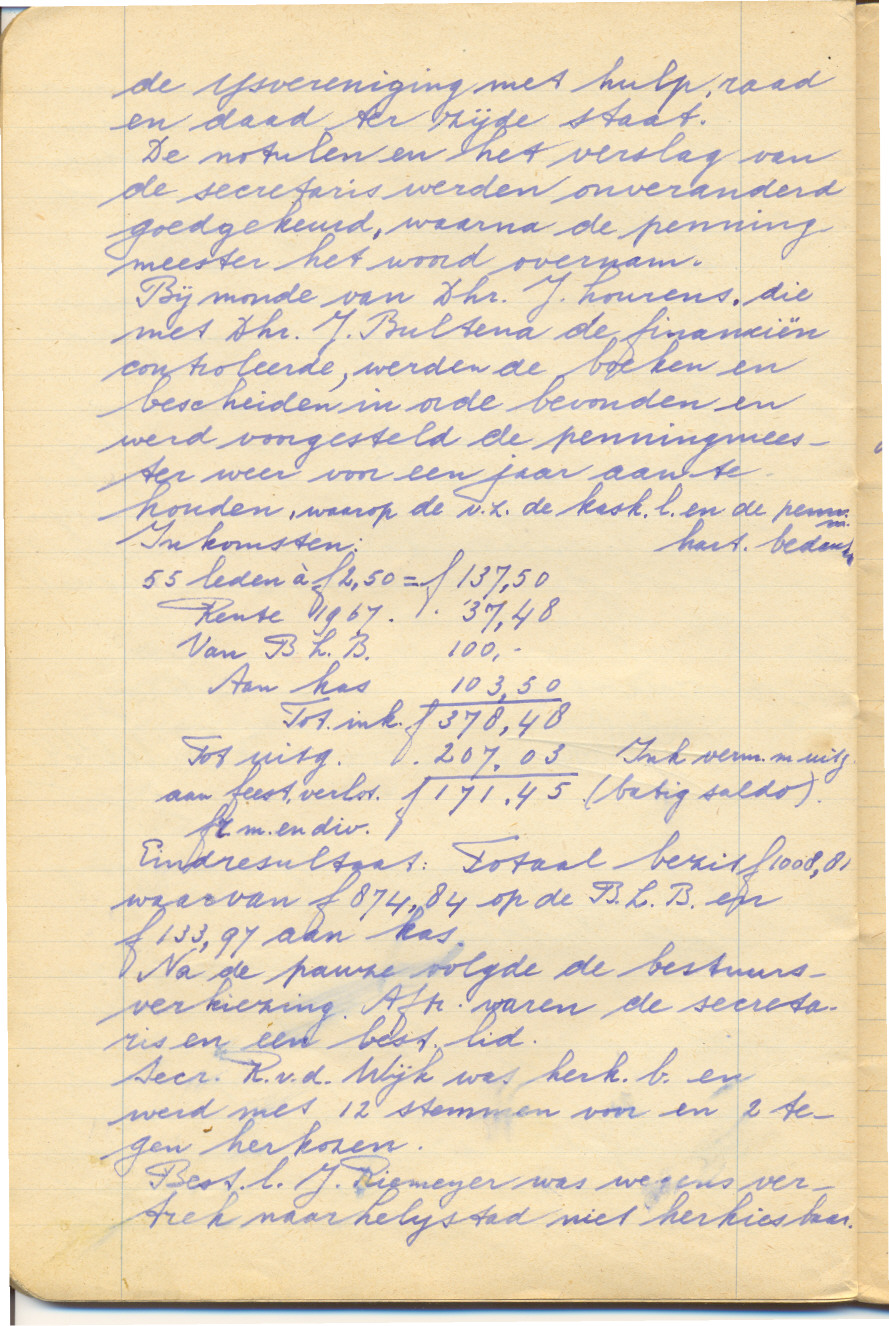 de ijsvereniging met hulp, raad
en daad ter zijde staat.
De notulen en het verslag van
de secretaris werden onveranderd
goedgekeurd, waarna de penning
meester het woord overnam.
Bij monde van Dhr. J. Lourens, die
met Dhr. J. Bultena de financiën
controleerde, werden de boeken en
bescheiden in orde bevonden en
werd voorgesteld de penningmees-
ter weer voor een jaar aan te
houden, waarop de v.z. de kask.l. en de penn.
m.
hart. bedankt
Inkomsten:
55 leden à f 2,50 = f 137,50
Rente 1967. . 37,48
Van B L. B. 100,-
Aan kas 103,50
Tot. ink. f 378,48
Tot uitg. . 207,03 Ink verm. m uitg.
aan feest, verlot. f 171,45 (batig saldo).
fr m. en div.
Eindresultaat: Totaal bezit f 1008,81
waarvan f 874,84 op de B.L.B. en
f 133,97 aan kas.
Na de pauze volgde de bestuurs-
verkiezing. Aftr. waren de secreta-
ris en een best. lid.
Secr. R.v.d. Wijk was herk. b. en
werd met 12 stemmen voor en 2 te-
gen herkozen.
Best. l. J. Riemeyer was wegens ver-
trek naar Lelystad niet herkiesbaar.